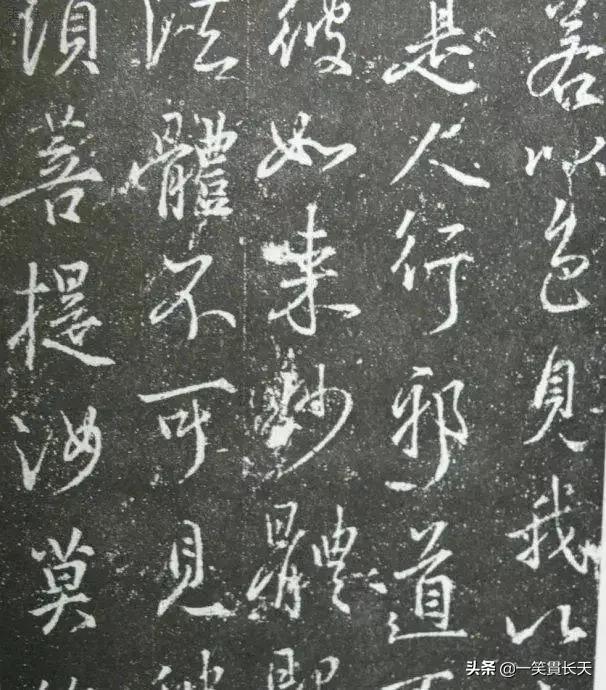 若以色見我以
是人行邪道
彼如来妙體即
法體不可見彼
須菩提汝莫
头条 @一笑貫长天